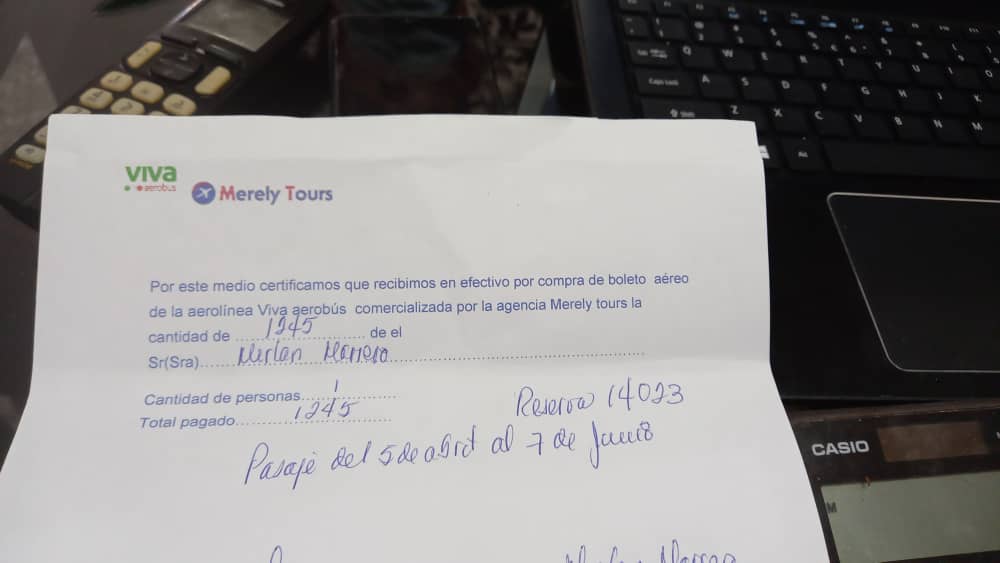 viva
aerobus
Merely Tours
Por este medio certificamos que recibimos en efectivo por compra de boleto aéreo
de la aerolínea Viva aerobús comercializada por la agencia Merely tours la
cantidad de 1245 de el
Sr(Sra) Merlan Marrero
Cantidad de personas 1
Total pagado 1245
Reserva 14023
Pasaje del 5 de abril al 7 de Junio
CASIO
M
Q W E R T Y U I O
Caps Lock A S D F G H J K
Shift Z X C V B N M
Alt